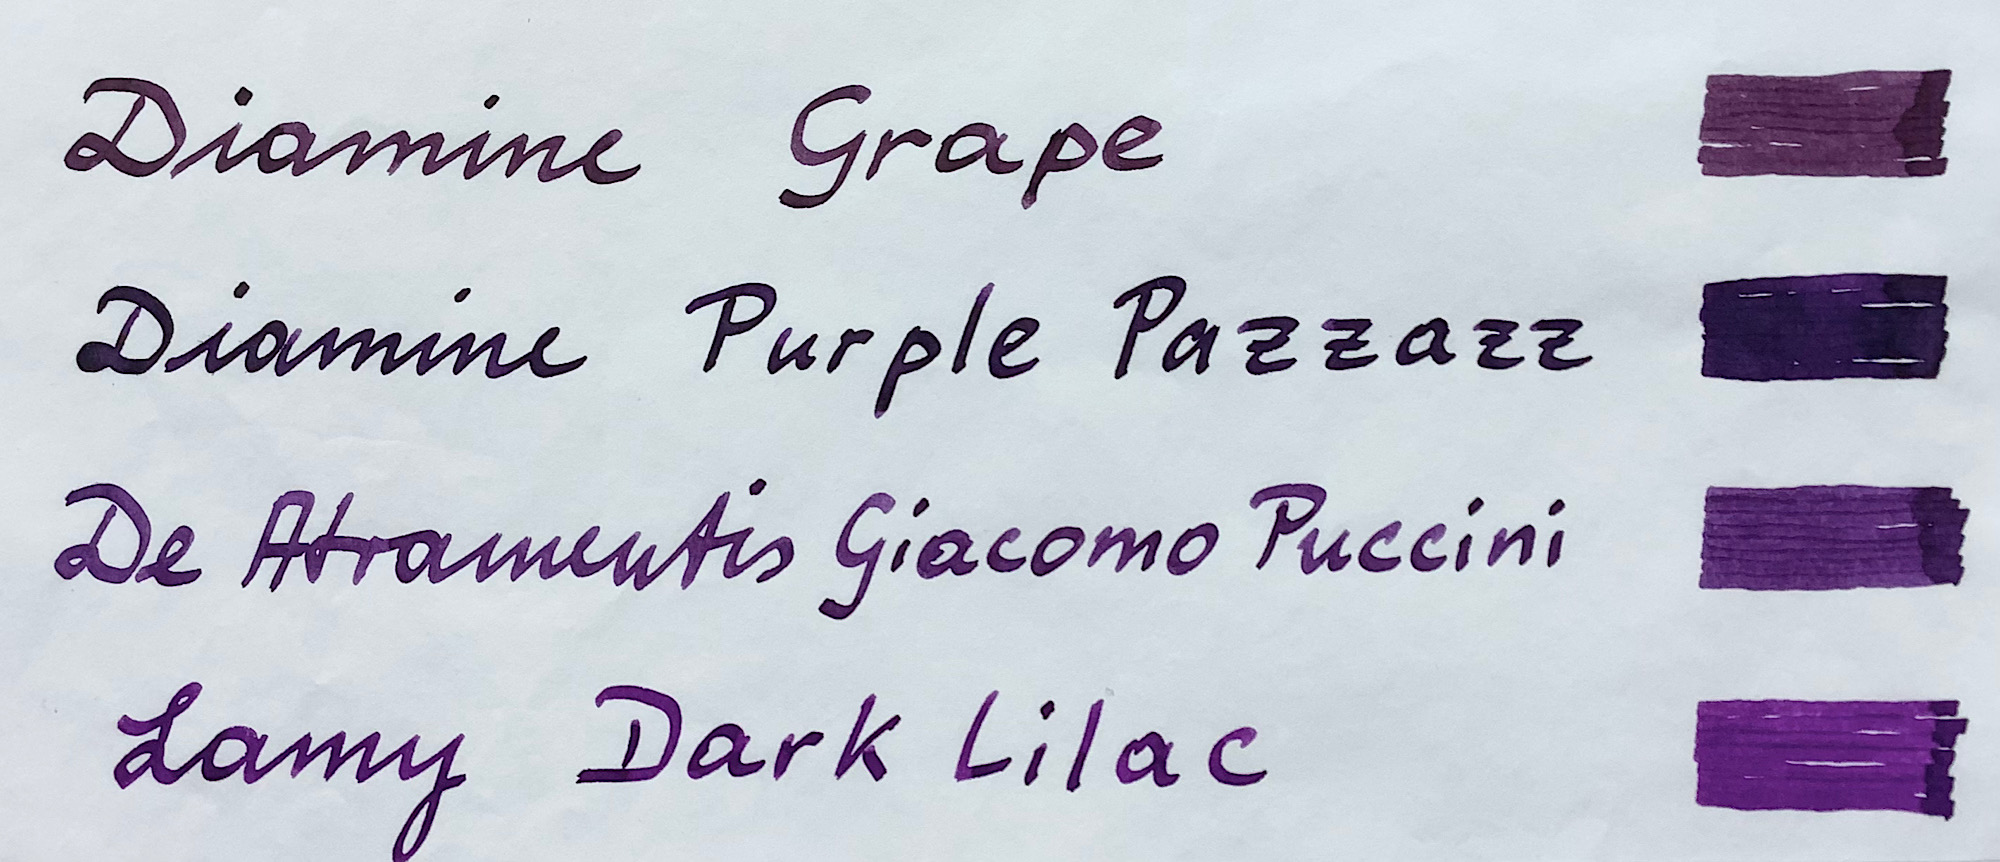 Diamine Grape
Diamine Purple Pazzazz
De Atramentis Giacomo Puccini
Lamy Dark Lilac